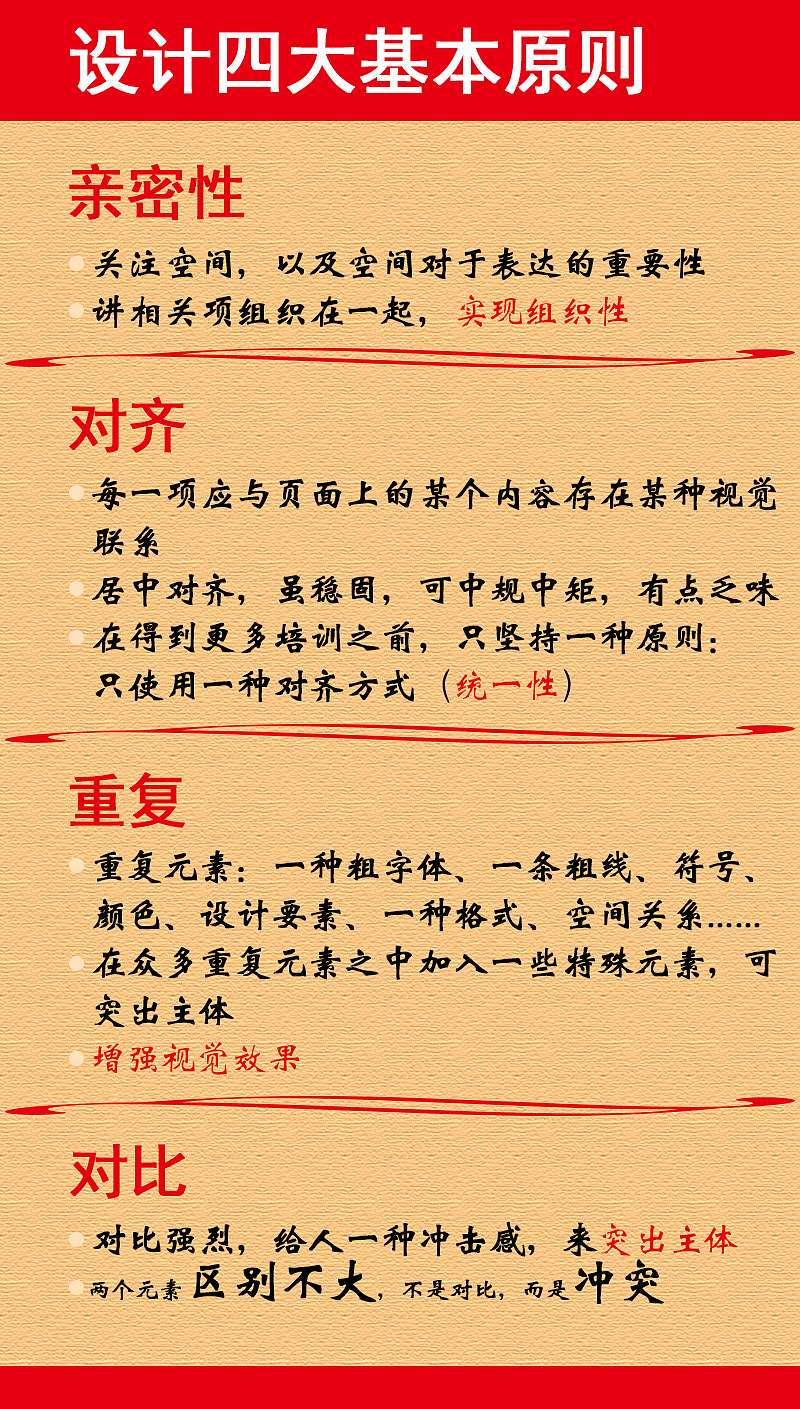 设计四大基本原则
亲密性
关注空间，以及空间对于表达的重要性
讲相关项组织在一起，实现组织性
对齐
每一项应与页面上的某个内容存在某种视觉
联系
居中对齐，虽稳固，可中规中矩，有点乏味
在得到更多培训之前，只坚持一种原则：
只使用一种对齐方式（统一性）
重复
重复元素：一种粗字体、一条粗线、符号、
颜色、设计要素、一种格式、空间关系......
在众多重复元素之中加入一些特殊元素，可
突出主体
增强视觉效果
对比
对比强烈，给人一种冲击感，来突出主体
两个元素区别不大，不是对比，而是冲突